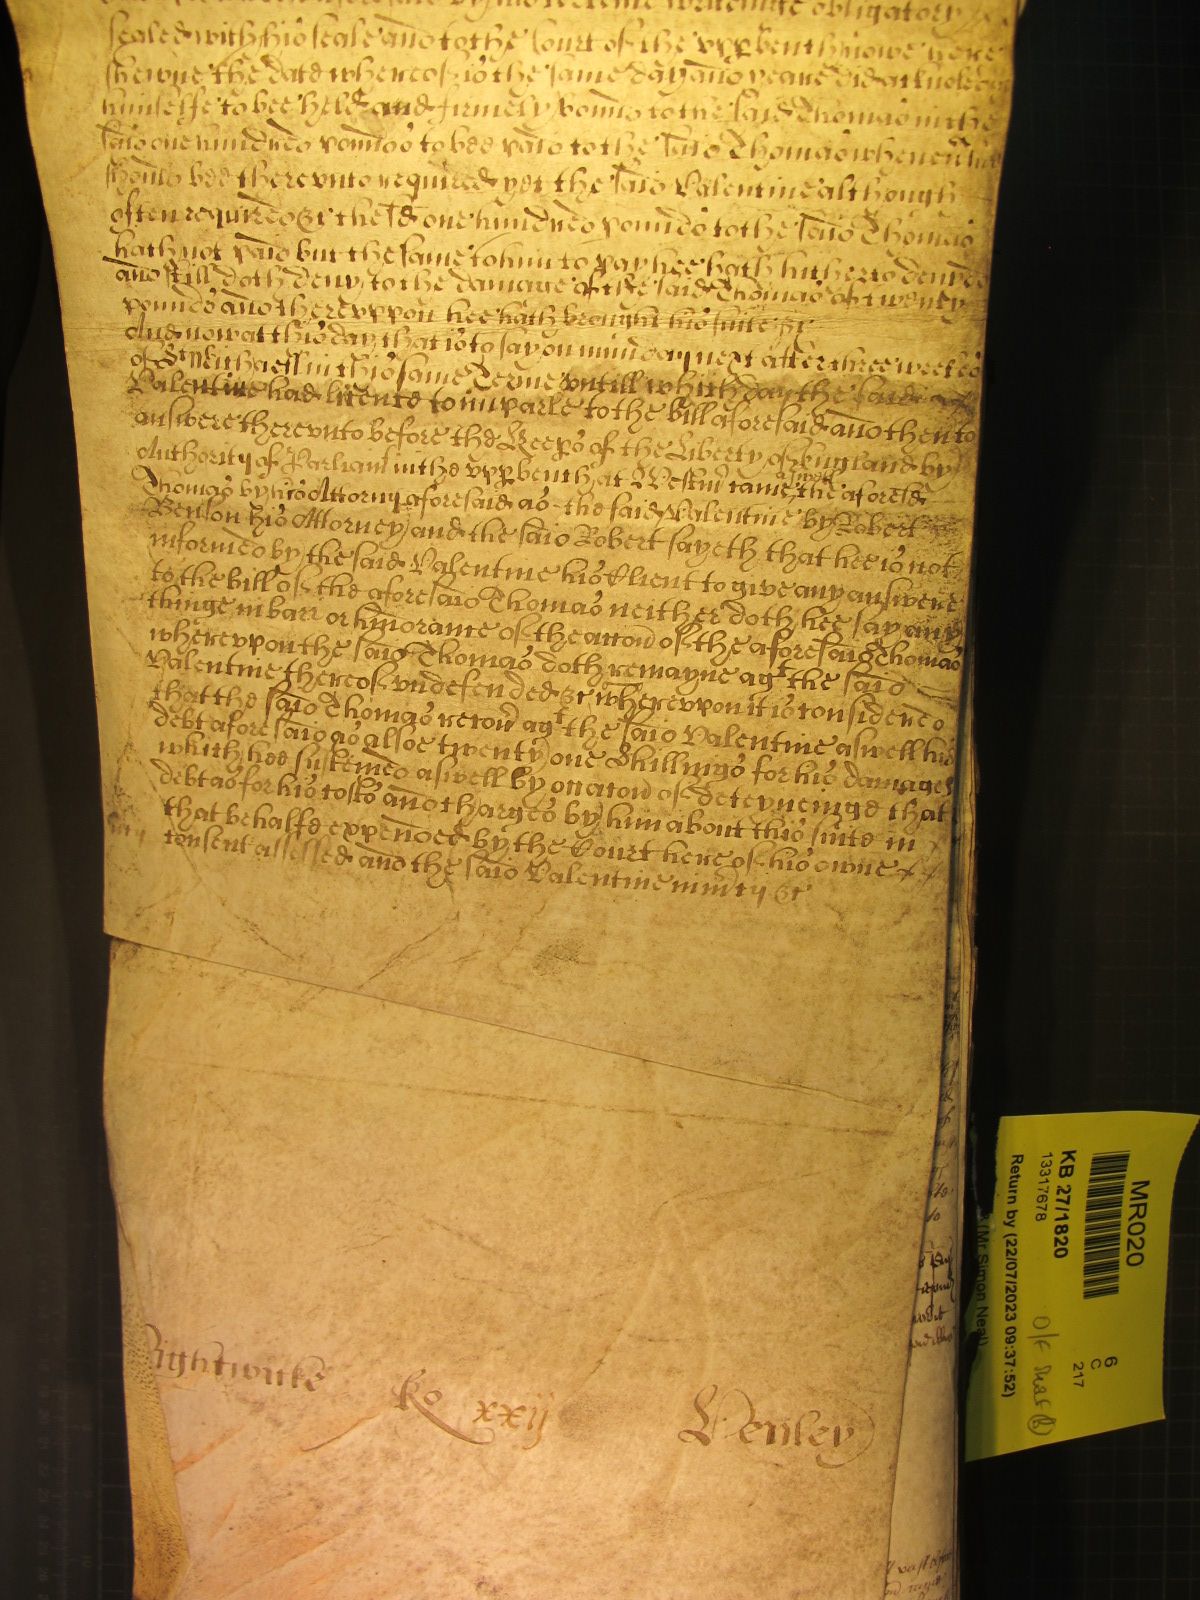 obligatory
sealed with his seale and to the Court of the vpp bench nowe here
shewne the date whereof is the same day and yeare did acknowledge
himselfe to bee held and firmely bound to the said Thomas in the
said one hundred pounds to bee paid to the said Thomas when hee
should bee therevnto required yet the said Valentine although
often required &c the sd one hundred pounds to the said Thomas
hath not paid but the same to him to pay hee hath hitherto denyed
and still doth deny to the damage of the said Thomas of twenty
pounds and therevppon hee hath brought his suite &c
And now at this day that is to say on munday next after three weekes
of St Michaell in this same Terme vntill which day the said
Valentine had licence to imparle to the bill aforesaid and then to
answere therevnto before the Keeps of the Liberty of England by
Authority of Parliamt in the vpp bench at Westmr came aswell the aforesd
Thomas by his Attorny aforesaid as the said Valentine by Robert
Benson his Attorney and the said Robert sayeth that hee is not
informed by the said Valentine his Client to give any answere
to the bill of the aforesaid Thomas neither doth hee say any
thinge in barr or hinorance of the accon of the aforesaid Thomas
wherevpon the said Thomas doth remayne agt the said
Valentine thereof vndefended &c wherevpon it is considered
that the said Thomas recovr agt the said Valentine aswell his
debt aforesaid as alsoe twenty one shillings for his damages
which hee susteined aswell by occacon of deteyneinge that
debt as for his costs and charges by him about this suite in
that behalfe expended by the Court here of his owne
consent assessed and the said Valentine in mcy &c
mcy
Rightwicke Ro xxij Henley
MR020
KB 27/1820
13317678
6
C
217
O/S Shelf (B)
(Mr Simon Neal)
Return by (22/07/2023 09:37:52)